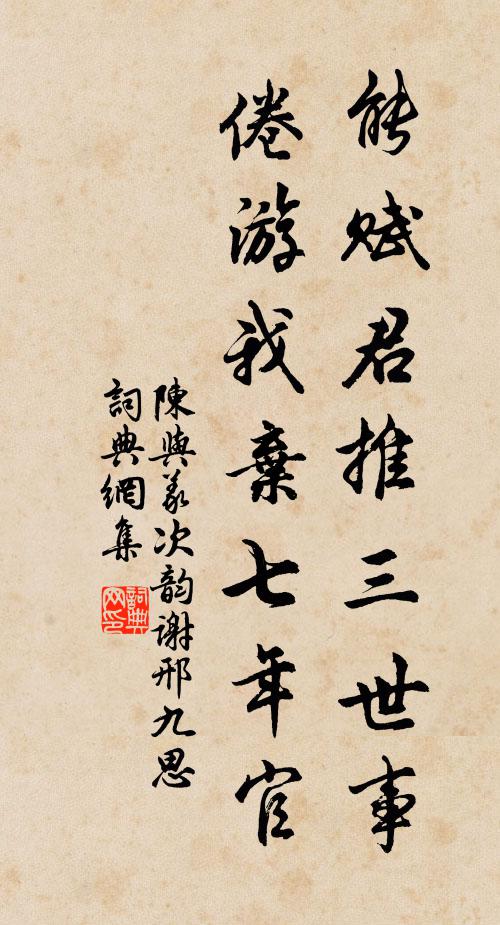 能賦君推三世事
倦游我棄七年官
陳與義次韵謝邢九思
詞典網集
詞典网印